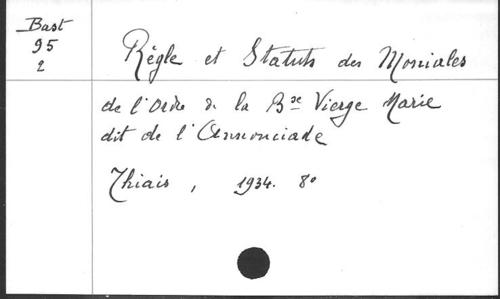 Bast
95
2
Règle et Statuts des Moniales
de l'Ordre de la Bse Vierge Marie
dit de l'Annonciade
Thiais, 1934. 8°